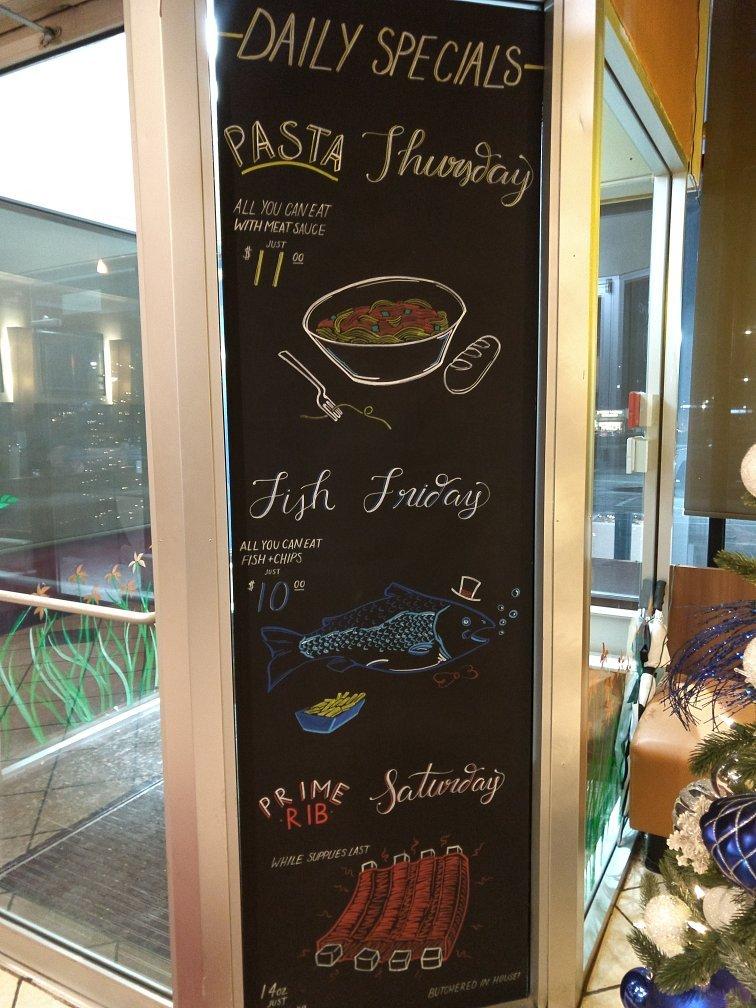 DAILY SPECIALS
PASTA Thursday
ALL YOU CAN EAT
WITH MEAT SAUCE
JUST
$11 00
Fish Friday
ALL YOU CAN EAT
FISH + CHIPS
JUST
$10 00
PRIME RIB Saturday
WHILE SUPPLIES LAST
14oz
JUST
BUTCHERED IN HOUSE!